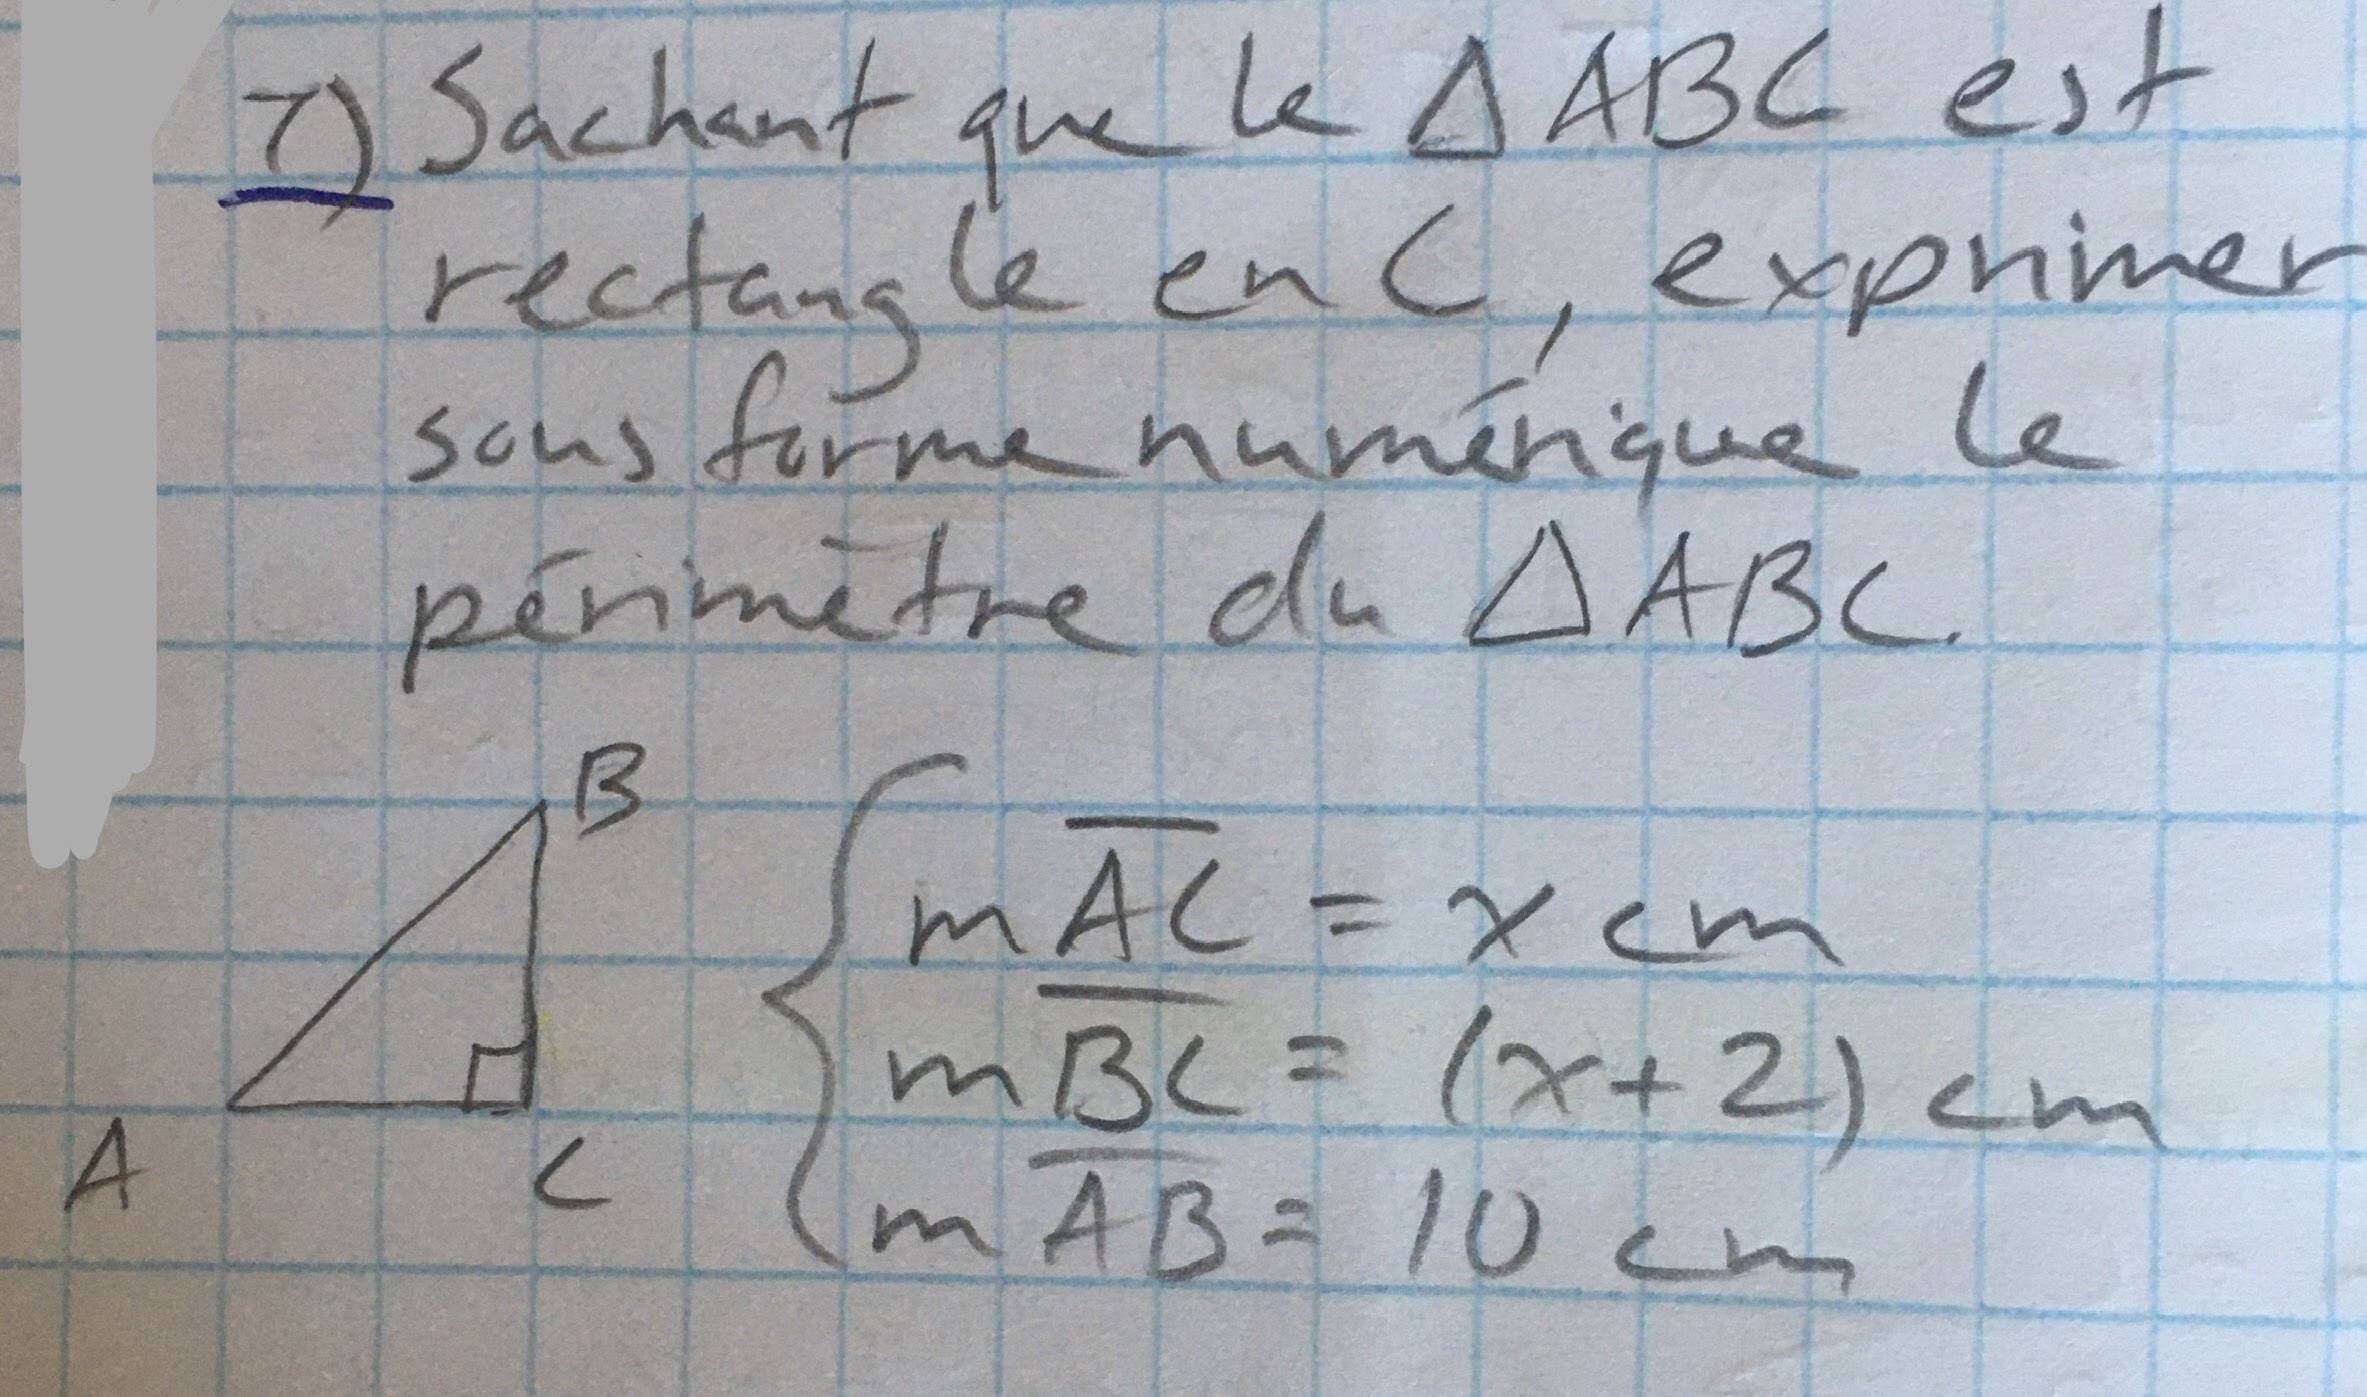 7) Sachant que le △ABC est
rectangle en C, exprimer
sous forme numérique le
périmètre du △ABC.
B
A
C
m\overline{AC} = x cm
m\overline{BC} = (x+2) cm
m\overline{AB} = 10 cm